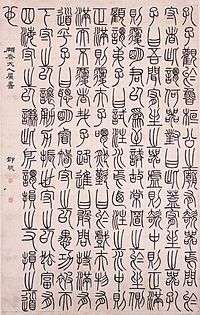 孔子觀於魯桓公之廟有欹器焉夫子問於
守廟者曰此謂何器對曰此蓋為宥坐之器孔
子曰吾聞宥坐之器虛則欹中則正滿則覆
顧謂弟子曰試注水焉乃注之水中則
正滿則覆夫子喟然嘆曰嗚呼夫物惡有
滿而不覆者哉子路進曰敢問持滿有
道乎子曰聰明睿智守之以愚功被天
下守之以讓勇力振世守之以怯富有
四海守之以謙此所謂損之又損之道
也
大兄屬書
鄧琰